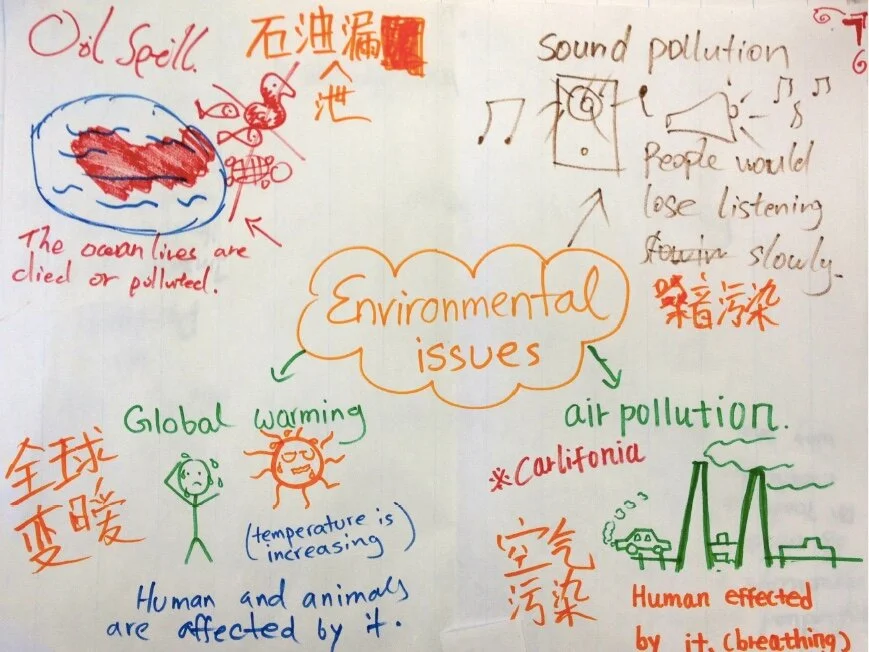 Oil Spill.
石油漏
^
泄
The ocean lives are
died or polluted.
Sound pollution
People would
lose listening
slowly.
噪音污染
Environmental
issues
Global warming
全球
变暖
(temperature is
increasing)
Human and animals
are affected by it.
air pollution.
※Carlifonia
空气
污染
Human effected
by it. (breathing)